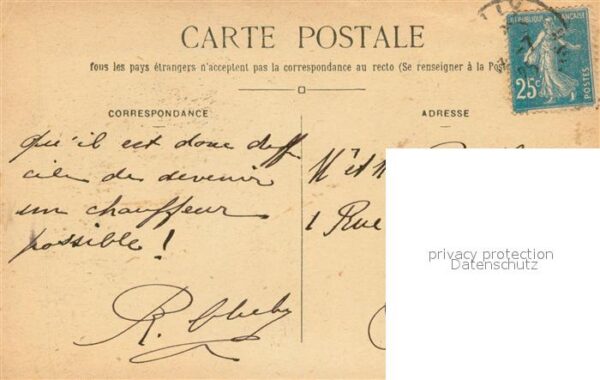 CARTE POSTALE
RÉPUBLIQUE FRANÇAISE
25c
POSTES
Tous les pays étrangers n'acceptent pas la correspondance au recto (Se renseigner à la Poste
CORRESPONDANCE
ADRESSE
qu'il est donc diffi
cile de devenir
un chauffeur
possible !
R.
Mr et
1 Rue
privacy protection
Datenschutz